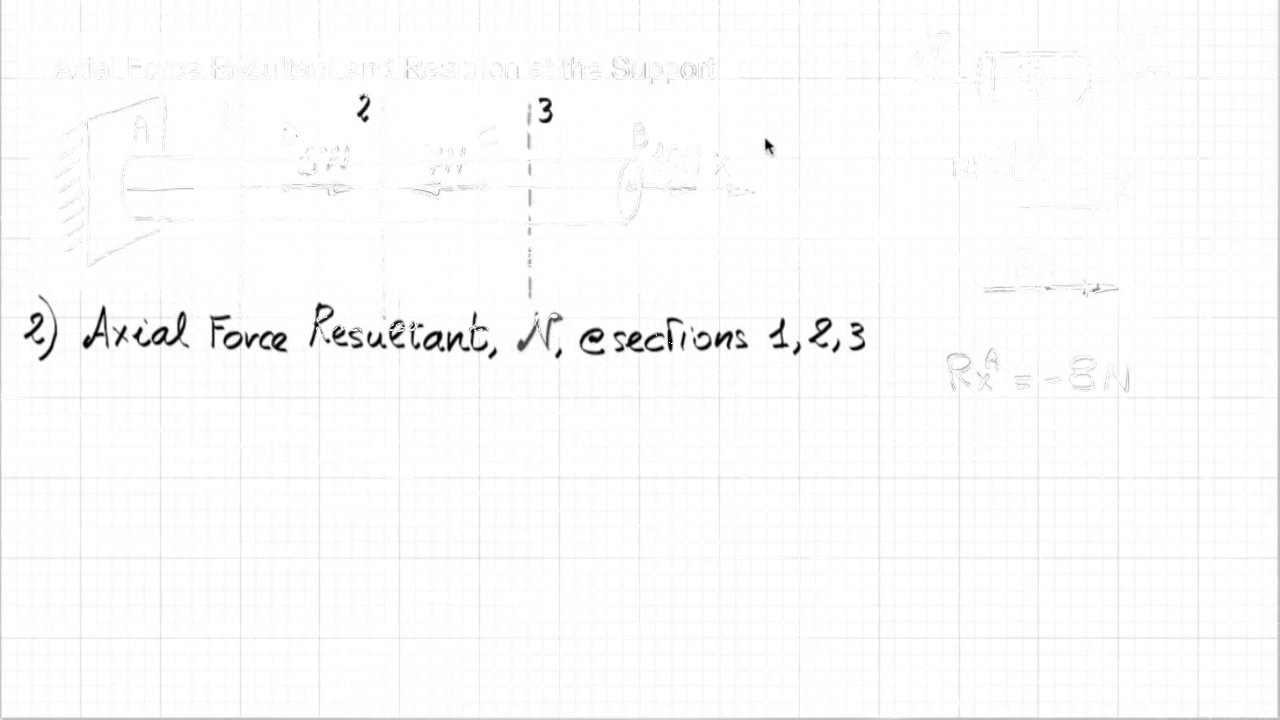 Axial Force Resultant and Reaction at the Support
2 3
A D 5N 7N C B 10N x
2) Axial Force Resultant, N, @ sections 1, 2, 3
RxA = -8N